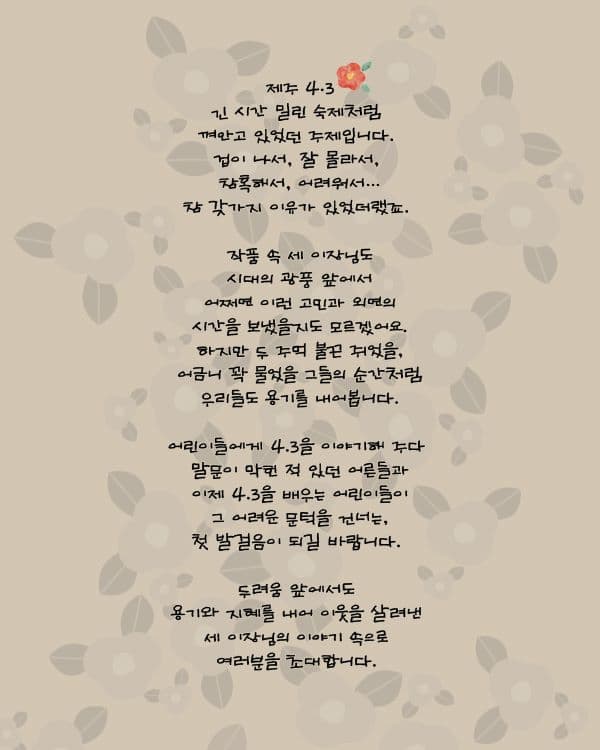 제주 4.3
긴 시간 밀린 숙제처럼
껴안고 있었던 주제입니다.
겁이 나서, 잘 몰라서,
참혹해서, 어려워서...
참 갖가지 이유가 있었더랬죠.
작품 속 세 이장님도
시대의 광풍 앞에서
어쩌면 이런 고민과 외면의
시간을 보냈을지도 모르겠어요.
하지만 두 주먹 불끈 쥐었을,
어금니 꽉 물었을 그들의 순간처럼
우리들도 용기를 내어봅니다.
어린이들에게 4.3을 이야기해 주다
말문이 막힌 적 있던 어른들과
이제 4.3을 배우는 어린이들이
그 어려운 문턱을 건너는,
첫 발걸음이 되길 바랍니다.
두려움 앞에서도
용기와 지혜를 내어 이웃을 살려낸
세 이장님의 이야기 속으로
여러분을 초대합니다.